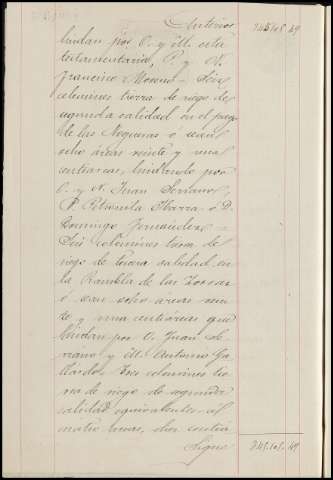 Anterior 845.108.49
lindan por O. y M. esta
testamentaria, P. y N.
Francisco Moreno = Seis
celemines tierra de riego de
segunda calidad en el pago
de las Nogueras ó sean
ocho áreas veinte y una
centiáreas, lindando por
O. y N. Juan Serrano,
P. Petronila Ibarra ó D.
Domingo Fernandez =
Seis celemines tierra de
riego de tercera calidad en
la Rambla de las
ó sean ocho áreas vein-
te y una centiáreas que
lindan por O. Juan Se-
rrano y M. Antonio Ga-
llardo = Tres celemines tie-
rra de riego de segunda
calidad equivalentes á
cuatro áreas, diez centiá
Sigue 845.108.49